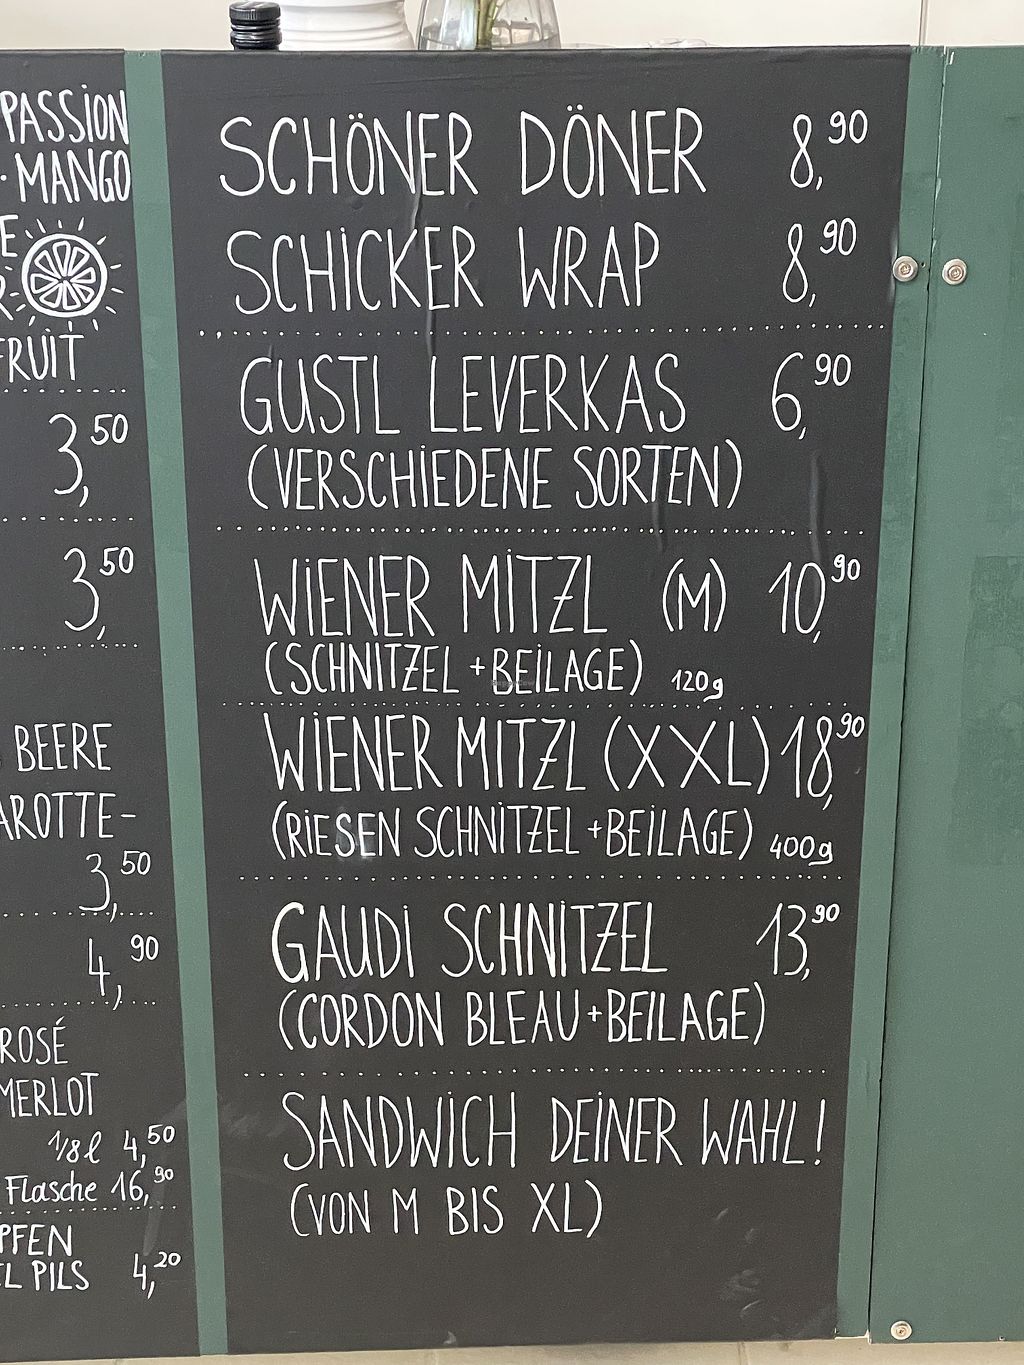 PASSION
·MANGO
FRUIT
3,50
3,50
BEERE
AROTTE-
3,50
4,90
ROSÉ
MERLOT
1/8 l 4,50
Flasche 16,90
PFEN
EL PILS 4,20
SCHÖNER DÖNER 8,90
SCHICKER WRAP 8,90
GUSTL LEVERKAS 6,90
(VERSCHIEDENE SORTEN)
WIENER MITZL (M) 10,90
(SCHNITZEL + BEILAGE) 120g
WIENER MITZL (XXL) 18,90
(RIESEN SCHNITZEL + BEILAGE) 400g
GAUDI SCHNITZEL 13,90
(CORDON BLEAU + BEILAGE)
SANDWICH DEINER WAHL!
(VON M BIS XL)